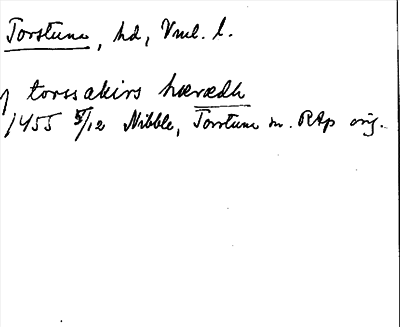 Torstuna, hd, Vml. l.
j torssakirs hæredh
1455 5/12 Nibble, Torstuna sn. RAp orig.